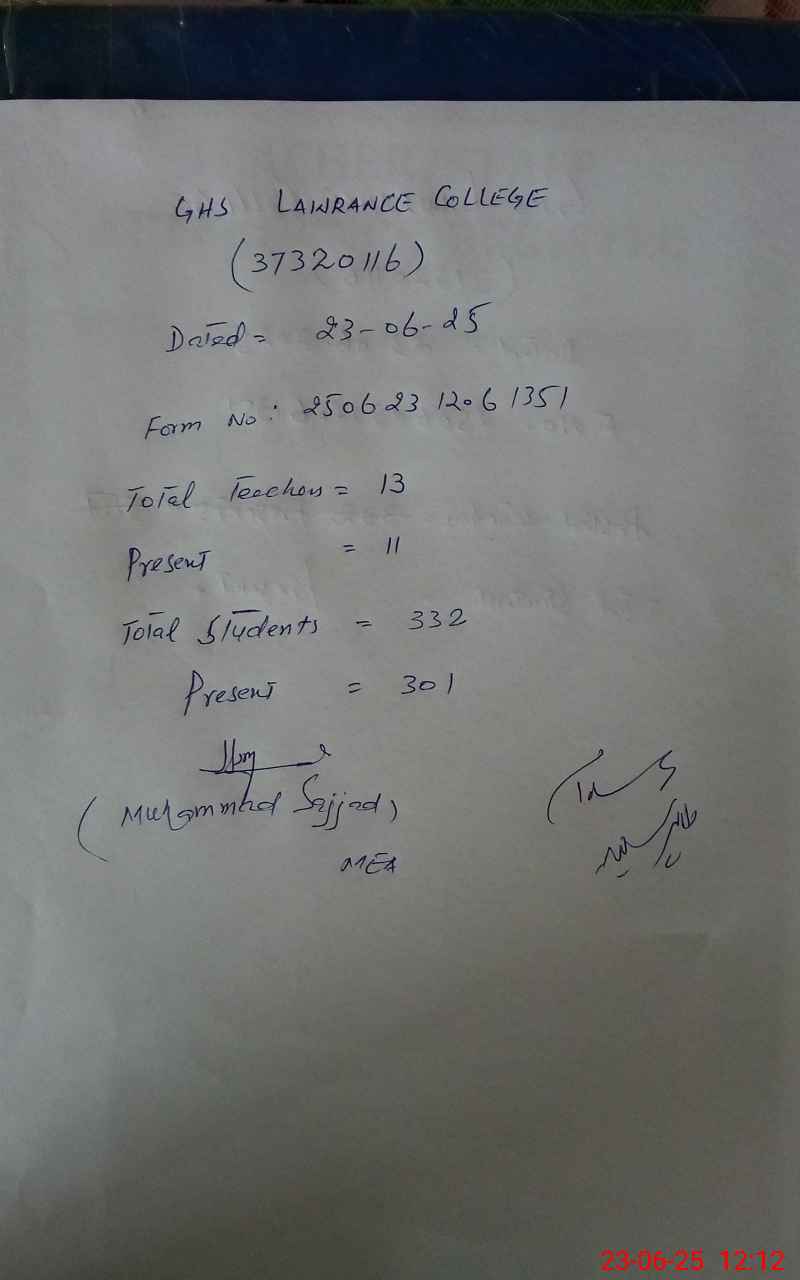 GHS LAWRANCE COLLEGE
(37320116)
Dated = 23-06-25
Form No: 25062312061351
Total Teachers = 13
Present = 11
Total Students = 332
Present = 301
(Muhammad Sajjad)
MEA
23-06-25 12:12